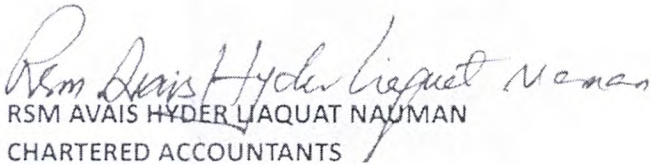 Rsm Avais Hyder Liaquat Nauman
RSM AVAIS HYDER LIAQUAT NAUMAN
CHARTERED ACCOUNTANTS